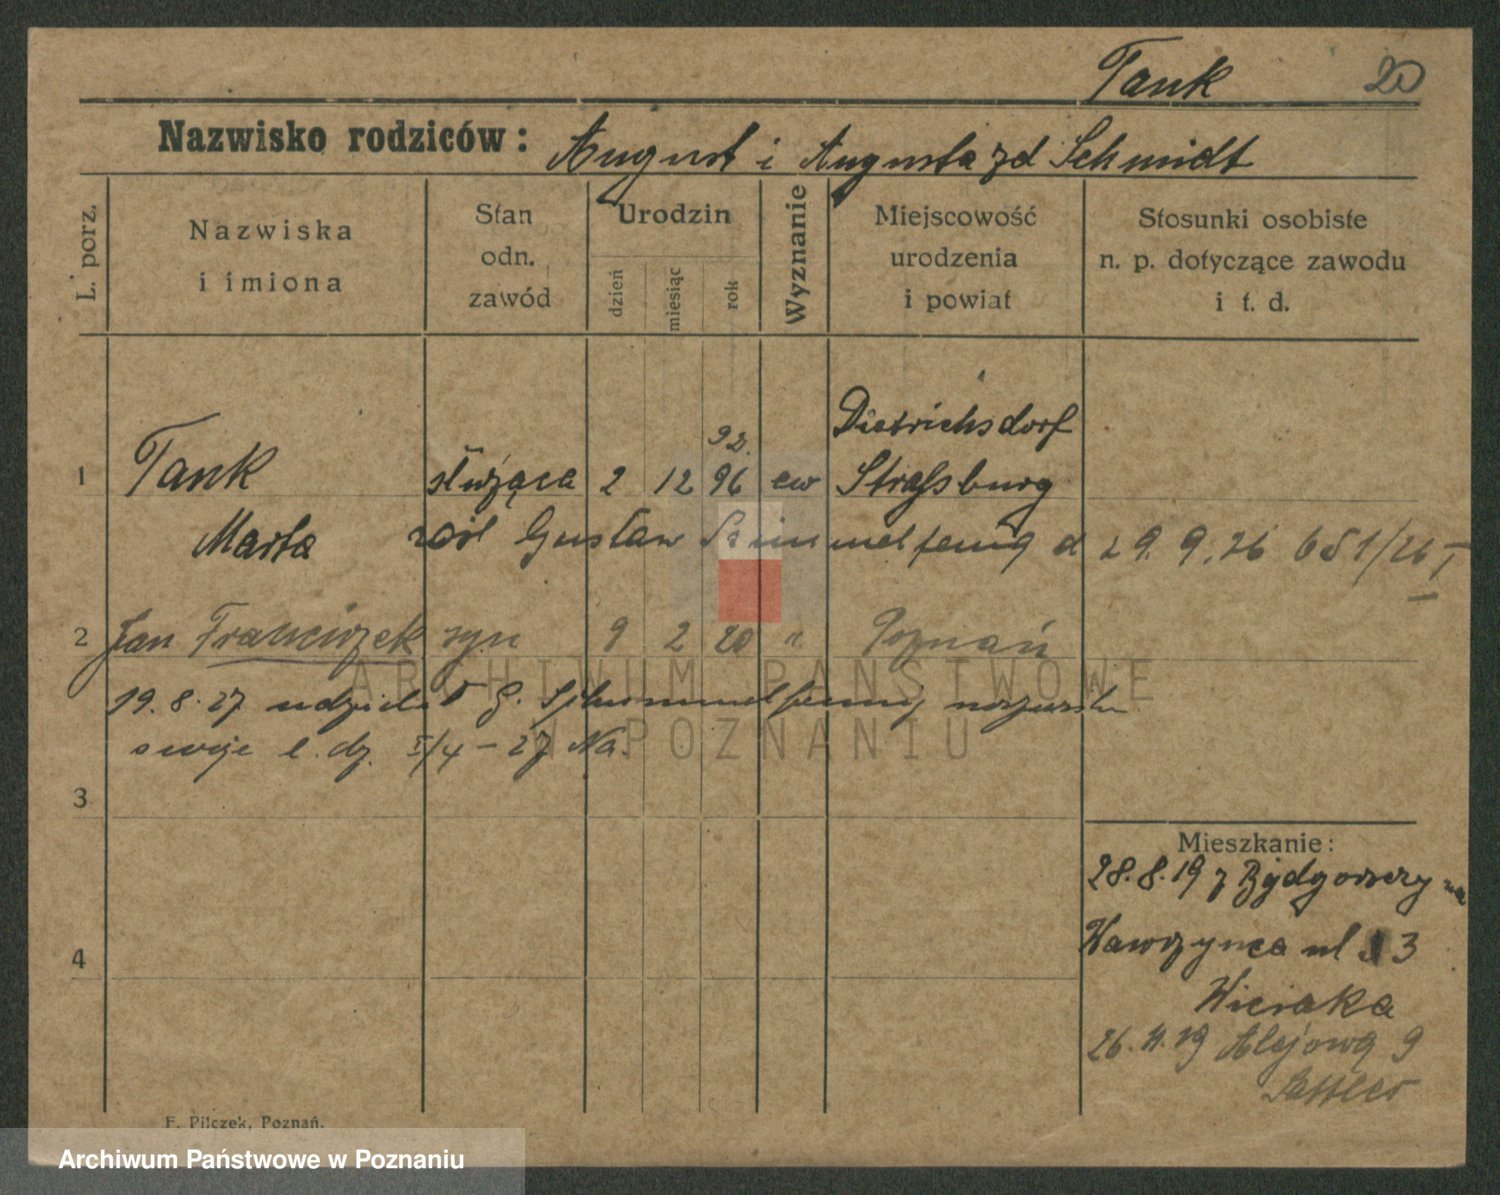 Tank 20
Nazwisko rodziców: August i Augusta zd Schmidt
L. porz.
Nazwiska
i imiona
Stan
odn.
zawód
Urodzin
dzień
miesiąc
rok
Wyznanie
Miejscowość
urodzenia
i powiat
Stosunki osobiste
n. p. dotyczące zawodu
i t. d.
Dietrichsdorf
92.
1 Tank służąca 2 12 96 ew Strassburg
Marta Gustaw d 29.9.26 651/26 I
2 Jan Franciszek syn 9 2 20 Poznań
19.8.27 udzielił G. Schimmelfennig nazwisko
swoje l. dz. I/4-27 Na.
3
Mieszkanie:
28.8.19 z Bydgoszczy na
4 Wawrzynca ul 3
26.11.19 Alejowa 9
Sattler
F. Pilczek, Poznań.
ARCHIWUM PAŃSTWOWE
W POZNANIU
Archiwum Państwowe w Poznaniu